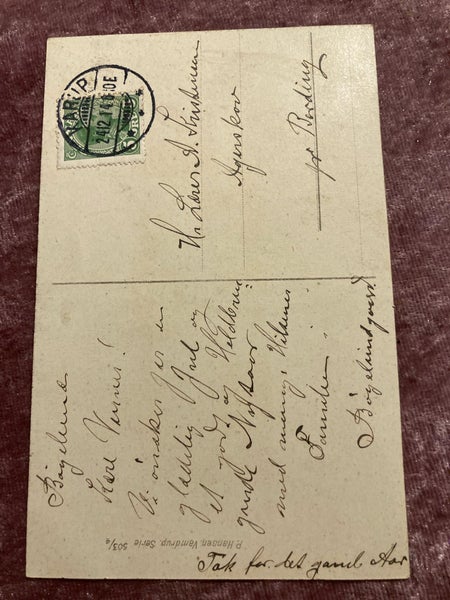 Bøgelund
Kære Venner!
Vi ønsker jer en
glædelig Jul og
et godt og
godt Nytaar
med mange Hilsner
Familien
Bøgelundgaard
Tak for det gamle Aar
P. Hansen, Vamdrup. Serie 503/6
KARUP
24.12.14
Hr. A. Kristensen
Agerskov
pr Bording